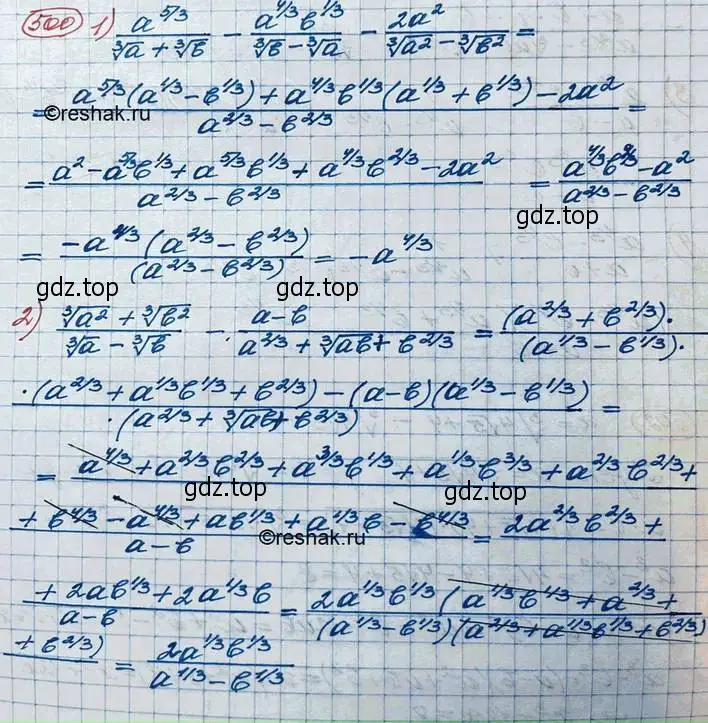 500 1) a^{5/3}/(∛a + ∛b) − a^{4/3}b^{1/3}/(∛b − ∛a) − 2a²/(∛a² − ∛b²) =
= (a^{5/3}(a^{1/3} − b^{1/3}) + a^{4/3}b^{1/3}(a^{1/3} + b^{1/3}) − 2a²)/(a^{2/3} − b^{2/3}) =
©reshak.ru
= (a² − a^{5/3}b^{1/3} + a^{5/3}b^{1/3} + a^{4/3}b^{2/3} − 2a²)/(a^{2/3} − b^{2/3}) = (a^{4/3}b^{2/3} − a²)/(a^{2/3} − b^{2/3})
gdz.top
= −a^{4/3}(a^{2/3} − b^{2/3})/(a^{2/3} − b^{2/3}) = −a^{4/3}
gdz.top
gdz.top
2) (∛a² + ∛b²)/(∛a − ∛b) − (a−b)/(a^{2/3} + ∛ab + b^{2/3}) = (a^{2/3} + b^{2/3})·/(a^{1/3} − b^{1/3})·
·(a^{2/3} + a^{1/3}b^{1/3} + b^{2/3}) − (a−b)(a^{1/3} − b^{1/3})/·(a^{2/3} + ∛ab + b^{2/3}) =
gdz.top
= a^{4/3} + a^{2/3}b^{2/3} + a^{3/3}b^{1/3} + a^{1/3}b^{3/3} + a^{2/3}b^{2/3} +
gdz.top
gdz.top
+ b^{4/3} − a^{4/3} + ab^{1/3} + a^{1/3}b − b^{4/3}/(a−b) = 2a^{2/3}b^{2/3} +
©reshak.ru
+ 2ab^{1/3} + 2a^{1/3}b/(a−b) = 2a^{1/3}b^{1/3}(a^{1/3}b^{1/3} + a^{2/3} +/(a^{1/3} − b^{1/3})(a^{2/3} + a^{1/3}b^{1/3} + b^{2/3})
+ b^{2/3}) = 2a^{1/3}b^{1/3}/(a^{1/3} − b^{1/3})